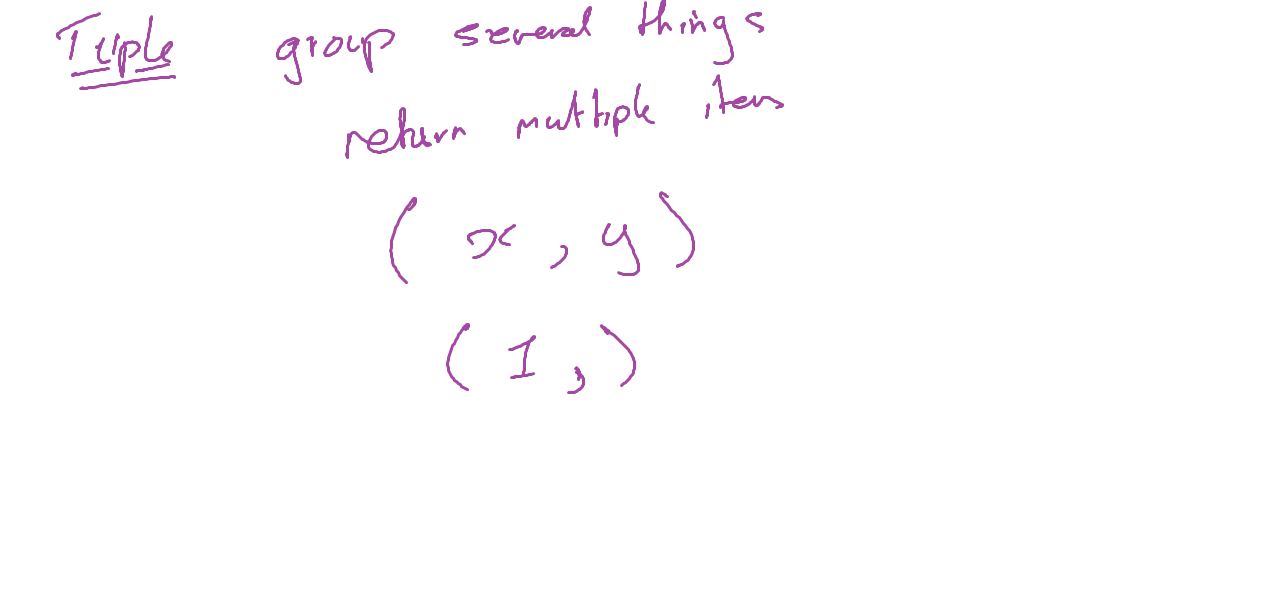 Tuple group several things
return multiple items
( x , y )
( 1 , )